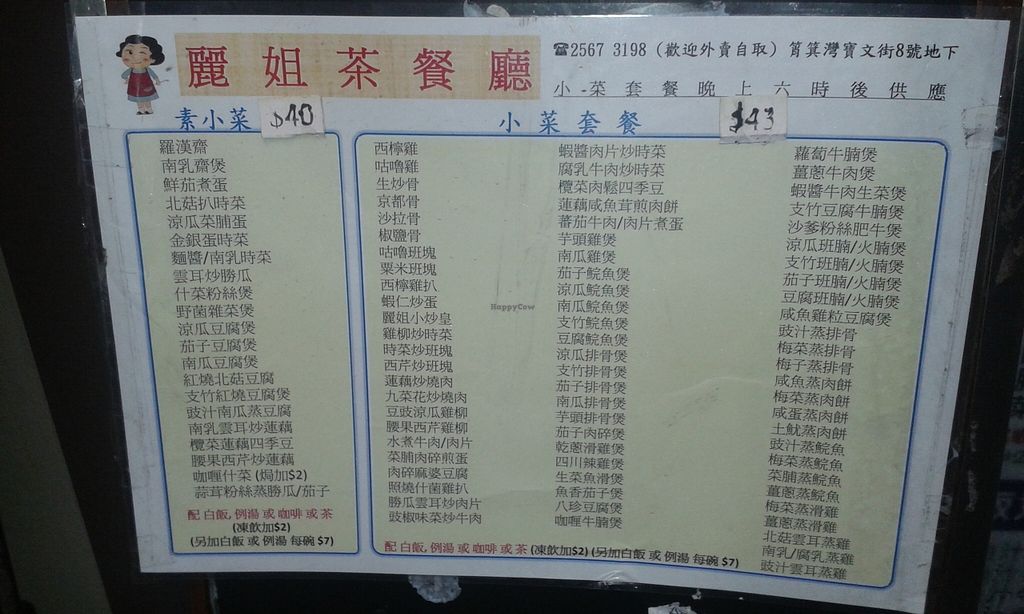 麗姐茶餐廳
☎2567 3198 (歡迎外賣自取) 筲箕灣寶文街8號地下
小-菜套餐晚上六時後供應
素小菜 $40
羅漢齋
南乳齋煲
鮮茄煮蛋
北菇扒時菜
涼瓜菜脯蛋
金銀蛋時菜
麵醬/南乳時菜
雲耳炒勝瓜
什菜粉絲煲
野菌雜菜煲
涼瓜豆腐煲
茄子豆腐煲
南瓜豆腐煲
紅燒北菇豆腐
支竹紅燒豆腐煲
豉汁南瓜蒸豆腐
南乳雲耳炒蓮藕
欖菜蓮藕四季豆
腰果西芹炒蓮藕
咖喱什菜 (焗加$2)
蒜茸粉絲蒸勝瓜/茄子
配 白飯, 例湯 或 咖啡 或 茶
(凍飲加$2)
(另加白飯 或 例湯 每碗 $7)
小菜套餐 $43
西檸雞
咕嚕雞
生炒骨
京都骨
沙拉骨
椒鹽骨
咕嚕班塊
粟米班塊
西檸雞扒
蝦仁炒蛋
麗姐小炒皇
雞柳炒時菜
時菜炒班塊
西芹炒班塊
蓮藕炒燒肉
九菜花炒燒肉
豆豉涼瓜雞柳
腰果西芹雞柳
水煮牛肉/肉片
菜脯肉碎煎蛋
肉碎麻婆豆腐
照燒什菌雞扒
勝瓜雲耳炒肉片
豉椒味菜炒牛肉
蝦醬肉片炒時菜
腐乳牛肉炒時菜
欖菜肉鬆四季豆
蓮藕咸魚茸煎肉餅
蕃茄牛肉/肉片煮蛋
芋頭雞煲
南瓜雞煲
茄子鯇魚煲
涼瓜鯇魚煲
南瓜鯇魚煲
支竹鯇魚煲
豆腐鯇魚煲
涼瓜排骨煲
支竹排骨煲
茄子排骨煲
南瓜排骨煲
芋頭排骨煲
茄子肉碎煲
乾蔥滑雞煲
四川辣雞煲
生菜魚滑煲
魚香茄子煲
八珍豆腐煲
咖喱牛腩煲
蘿蔔牛腩煲
薑蔥牛肉煲
蝦醬牛肉生菜煲
支竹豆腐牛腩煲
沙爹粉絲肥牛煲
涼瓜班腩/火腩煲
支竹班腩/火腩煲
茄子班腩/火腩煲
豆腐班腩/火腩煲
咸魚雞粒豆腐煲
豉汁蒸排骨
梅菜蒸排骨
梅子蒸排骨
咸魚蒸肉餅
梅菜蒸肉餅
咸蛋蒸肉餅
土魷蒸肉餅
豉汁蒸鯇魚
梅菜蒸鯇魚
菜脯蒸鯇魚
薑蔥蒸鯇魚
梅菜蒸滑雞
薑蔥蒸滑雞
北菇雲耳蒸雞
南乳/腐乳蒸雞
豉汁雲耳蒸雞
配 白飯, 例湯 或 咖啡 或 茶 (凍飲加$2) (另加白飯 或 例湯 每碗 $7)
HappyCow